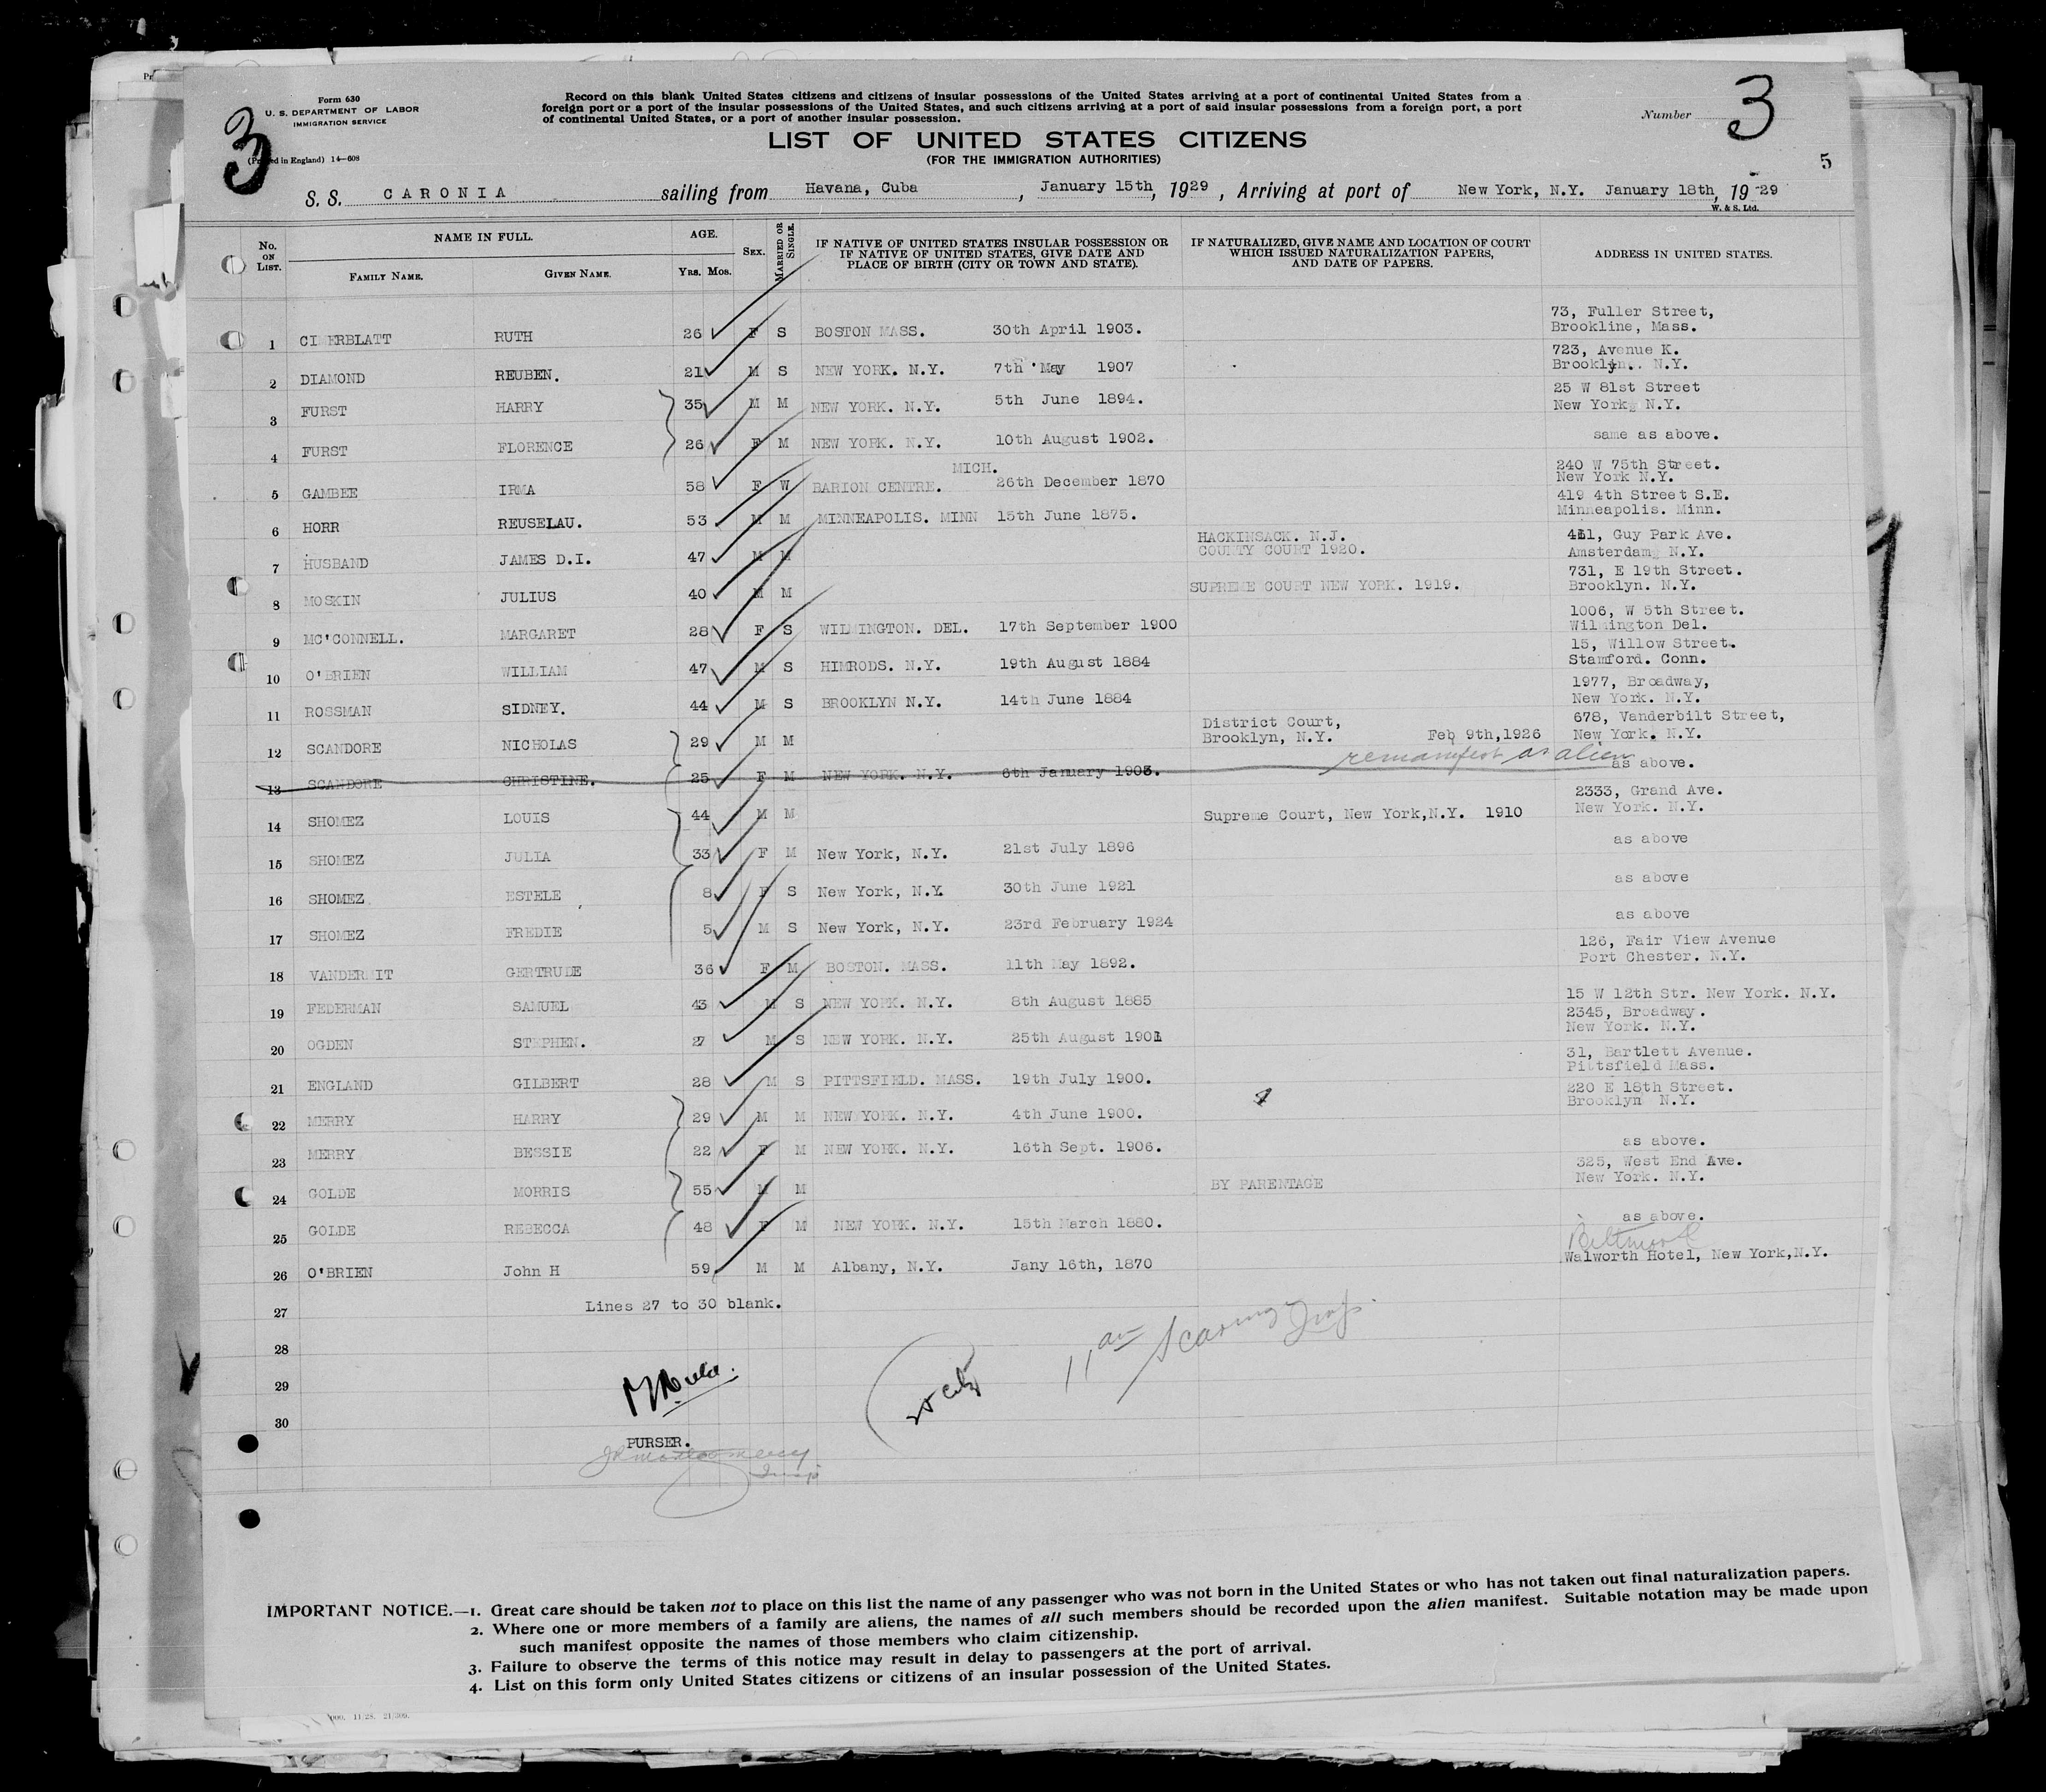 Form 630
U. S. DEPARTMENT OF LABOR
IMMIGRATION SERVICE
(Printed in England) 14—608
3
Record on this blank United States citizens and citizens of insular possessions of the United States arriving at a port of continental United States from a
foreign port or a port of the insular possessions of the United States, and such citizens arriving at a port of said insular possessions from a foreign port, a port
of continental United States, or a port of another insular possession.
Number 3
LIST OF UNITED STATES CITIZENS
(FOR THE IMMIGRATION AUTHORITIES)
5
S. S. CARONIA sailing from Havana, Cuba, January 15th, 1929, Arriving at port of New York, N.Y. January 18th, 19 29
W. & S. Ltd.
No. ON LIST. NAME IN FULL. AGE. SEX. MARRIED OR SINGLE. IF NATIVE OF UNITED STATES INSULAR POSSESSION OR IF NATIVE OF UNITED STATES, GIVE DATE AND PLACE OF BIRTH (CITY OR TOWN AND STATE). IF NATURALIZED, GIVE NAME AND LOCATION OF COURT WHICH ISSUED NATURALIZATION PAPERS, AND DATE OF PAPERS. ADDRESS IN UNITED STATES.
FAMILY NAME. GIVEN NAME. YRS. MOS.
1 RUTH 26 F S BOSTON MASS. 30th April 1903. 73, Fuller Street, Brookline, Mass.
2 DIAMOND REUBEN. 21 M S NEW YORK. N.Y. 7th May 1907 723, Avenue K. Brooklyn. N.Y.
3 FURST HARRY 35 M M NEW YORK. N.Y. 5th June 1894. 25 W 81st Street New York N.Y.
4 FURST FLORENCE 26 F M NEW YORK. N.Y. 10th August 1902. same as above.
5 GAMBEE IRMA 58 F W BARION CENTRE. MICH. 26th December 1870 240 W 75th Street. New York N.Y.
6 HORR REUSELAU. 53 M M MINNEAPOLIS. MINN 15th June 1875. 419 4th Street S.E. Minneapolis. Minn.
7 HUSBAND JAMES D.I. 47 M M HACKINSACK. N.J. COUNTY COURT 1920. Guy Park Ave. Amsterdam N.Y.
8 MOSKIN JULIUS 40 M M SUPREME COURT NEW YORK. 1919. 731, E 19th Street. Brooklyn. N.Y.
9 MC'CONNELL. MARGARET 28 F S WILMINGTON. DEL. 17th September 1900 1006, W 5th Street. Wilmington Del.
10 O'BRIEN WILLIAM 47 M S HIMRODS. N.Y. 19th August 1884 15, Willow Street. Stamford. Conn.
11 ROSSMAN SIDNEY. 44 M S BROOKLYN N.Y. 14th June 1884 1977, Broadway, New York. N.Y.
12 SCANDORE NICHOLAS 29 M M District Court, Brooklyn, N.Y. Feb 9th, 1926 678, Vanderbilt Street, New York. N.Y.
13 SCANDORE CHRISTINE. 25 F M NEW YORK. N.Y. 6th January 1903. remanifest as alien as above.
14 SHOMEZ LOUIS 44 M M Supreme Court, New York,N.Y. 1910 2333, Grand Ave. New York. N.Y.
15 SHOMEZ JULIA 33 F M New York, N.Y. 21st July 1896 as above
16 SHOMEZ ESTELE 8 F S New York, N.Y. 30th June 1921 as above
17 SHOMEZ FREDIE 5 M S New York, N.Y. 23rd February 1924 as above
18 GERTRUDE 36 F M BOSTON. MASS. 11th May 1892. 126, Fair View Avenue Port Chester. N.Y.
19 FEDERMAN SAMUEL 43 M S NEW YORK. N.Y. 8th August 1885 15 W 12th Str. New York. N.Y.
20 OGDEN STEPHEN. 27 M S NEW YORK. N.Y. 25th August 1901 2345, Broadway. New York. N.Y.
21 ENGLAND GILBERT 28 M S PITTSFIELD. MASS. 19th July 1900. 31, Bartlett Avenue. Pittsfield Mass.
22 MERRY HARRY 29 M M NEW YORK. N.Y. 4th June 1900. 220 E 18th Street. Brooklyn N.Y.
23 MERRY BESSIE 22 F M NEW YORK. N.Y. 16th Sept. 1906. as above.
24 GOLDE MORRIS 55 M M BY PARENTAGE 325, West End Ave. New York. N.Y.
25 GOLDE REBECCA 48 F M NEW YORK. N.Y. 15th March 1880. as above.
Biltmore
26 O'BRIEN John H 59 M M Albany, N.Y. Jany 16th, 1870 Walworth Hotel, New York,N.Y.
27 Lines 27 to 30 blank.
28
29
30
PURSER.
IMPORTANT NOTICE.—1. Great care should be taken not to place on this list the name of any passenger who was not born in the United States or who has not taken out final naturalization papers.
2. Where one or more members of a family are aliens, the names of all such members should be recorded upon the alien manifest. Suitable notation may be made upon
such manifest opposite the names of those members who claim citizenship.
3. Failure to observe the terms of this notice may result in delay to passengers at the port of arrival.
4. List on this form only United States citizens or citizens of an insular possession of the United States.